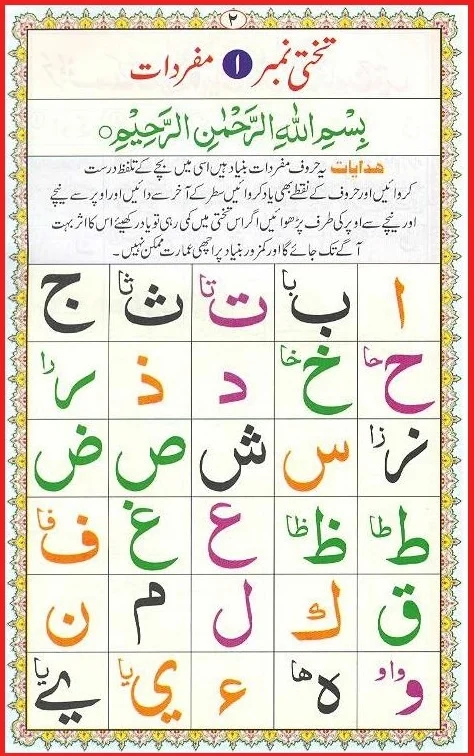 ۲
تختی نمبر ۱ مفردات
بِسْمِ اللهِ الرَّحْمٰنِ الرَّحِيْمِ
ھدایات یہ حروف مفردات بنیاد ہیں اسی میں بچے کے تلفظ درست
کروائیں اور حروف کے نقطے بھی یاد کروائیں سطر کے آخر سے دائیں اور اوپر سے نیچے
اور نیچے سے اوپر کی طرف پڑھوائیں اگر اس تختی میں کمی رہی تو یاد رکھیئے اس کا اثر بہت
آگے تک جائے گا اور کمزور بنیاد پر اچھی عمارت ممکن نہیں۔
ا ب با ت تا ث ثا ج
ح حا خ خا د ذ ر را
ز زا س ش ص ض
ط طا ظ ظا ع غ ف فا
ق ك ل م ن
و واو ه ها ء ي يا ے يا